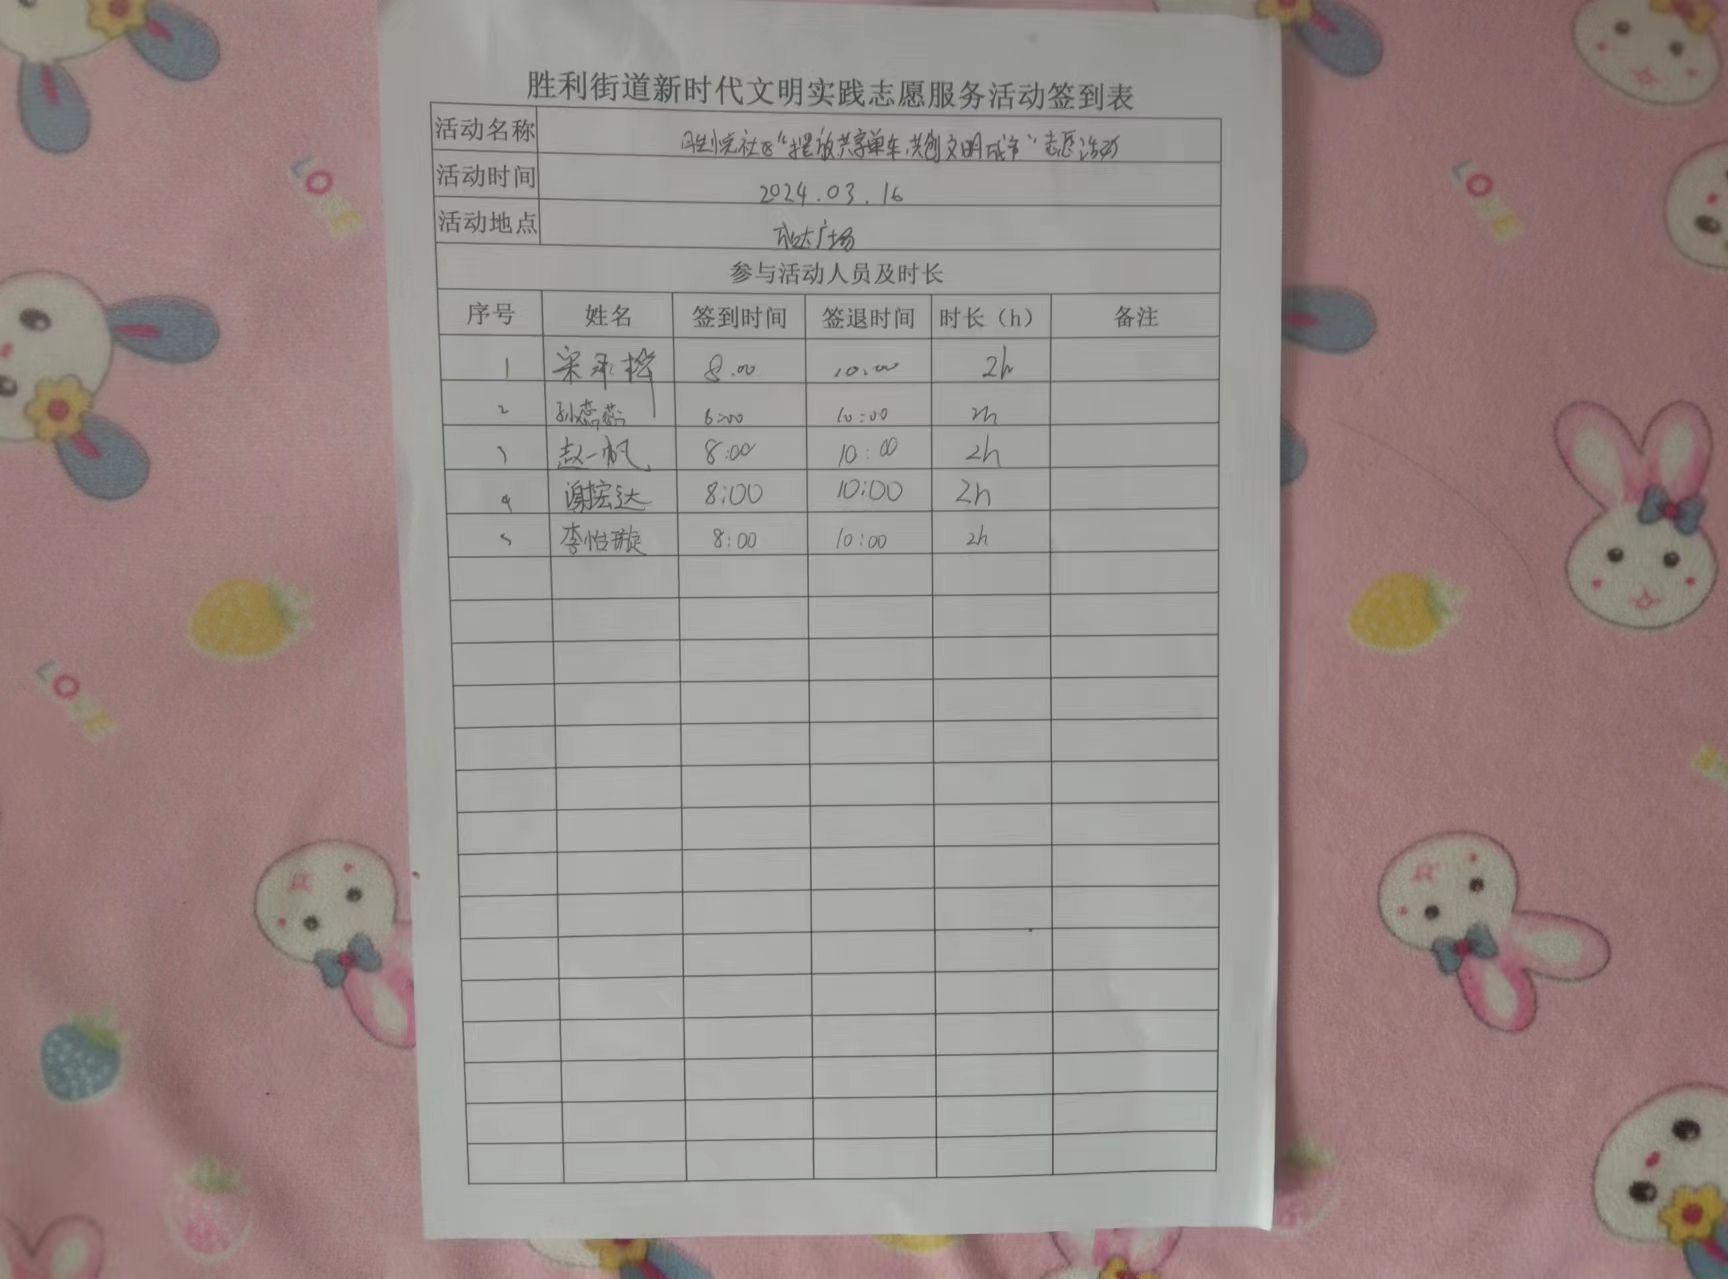 胜利街道新时代文明实践志愿服务活动签到表
活动名称 社区"摆放共享单车,共创文明城市"志愿活动
活动时间 2024.03.16
活动地点 广场
参与活动人员及时长
序号 姓名 签到时间 签退时间 时长（h） 备注
1 8.00 10.00 2h
2 孙燕燕 10:00 2h
3 赵一帆 8:00 10:00 2h
4 谢宏达 8:00 10:00 2h
5 李怡璇 8:00 10:00 2h
LOVE
LOVE
LOVE